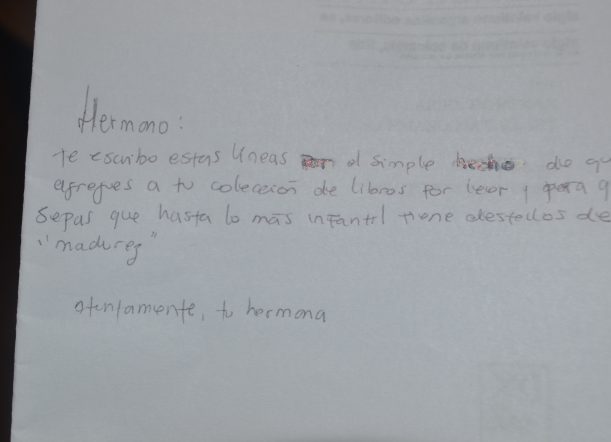 Hermano:
te escribo estas líneas por el simple hecho de qu
agregues a tu colección de libros por leer y para q
sepas que hasta lo más infantil tiene destellos de
"madurez"
atentamente, tu hermana